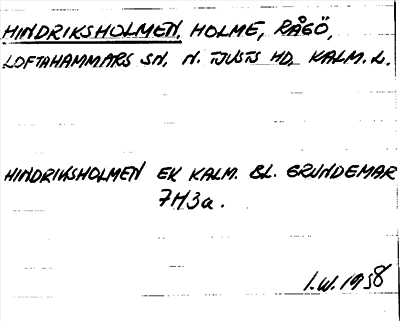 HINDRIKSHOLMEN, HOLME, RÅGÖ,
LOFTAHAMMARS SN. N. TJUSTS HD. KALM. L.
HINDRIKSHOLMEN EK KALM. BL. GRUNDEMAR
7H3a.
I.W. 1958